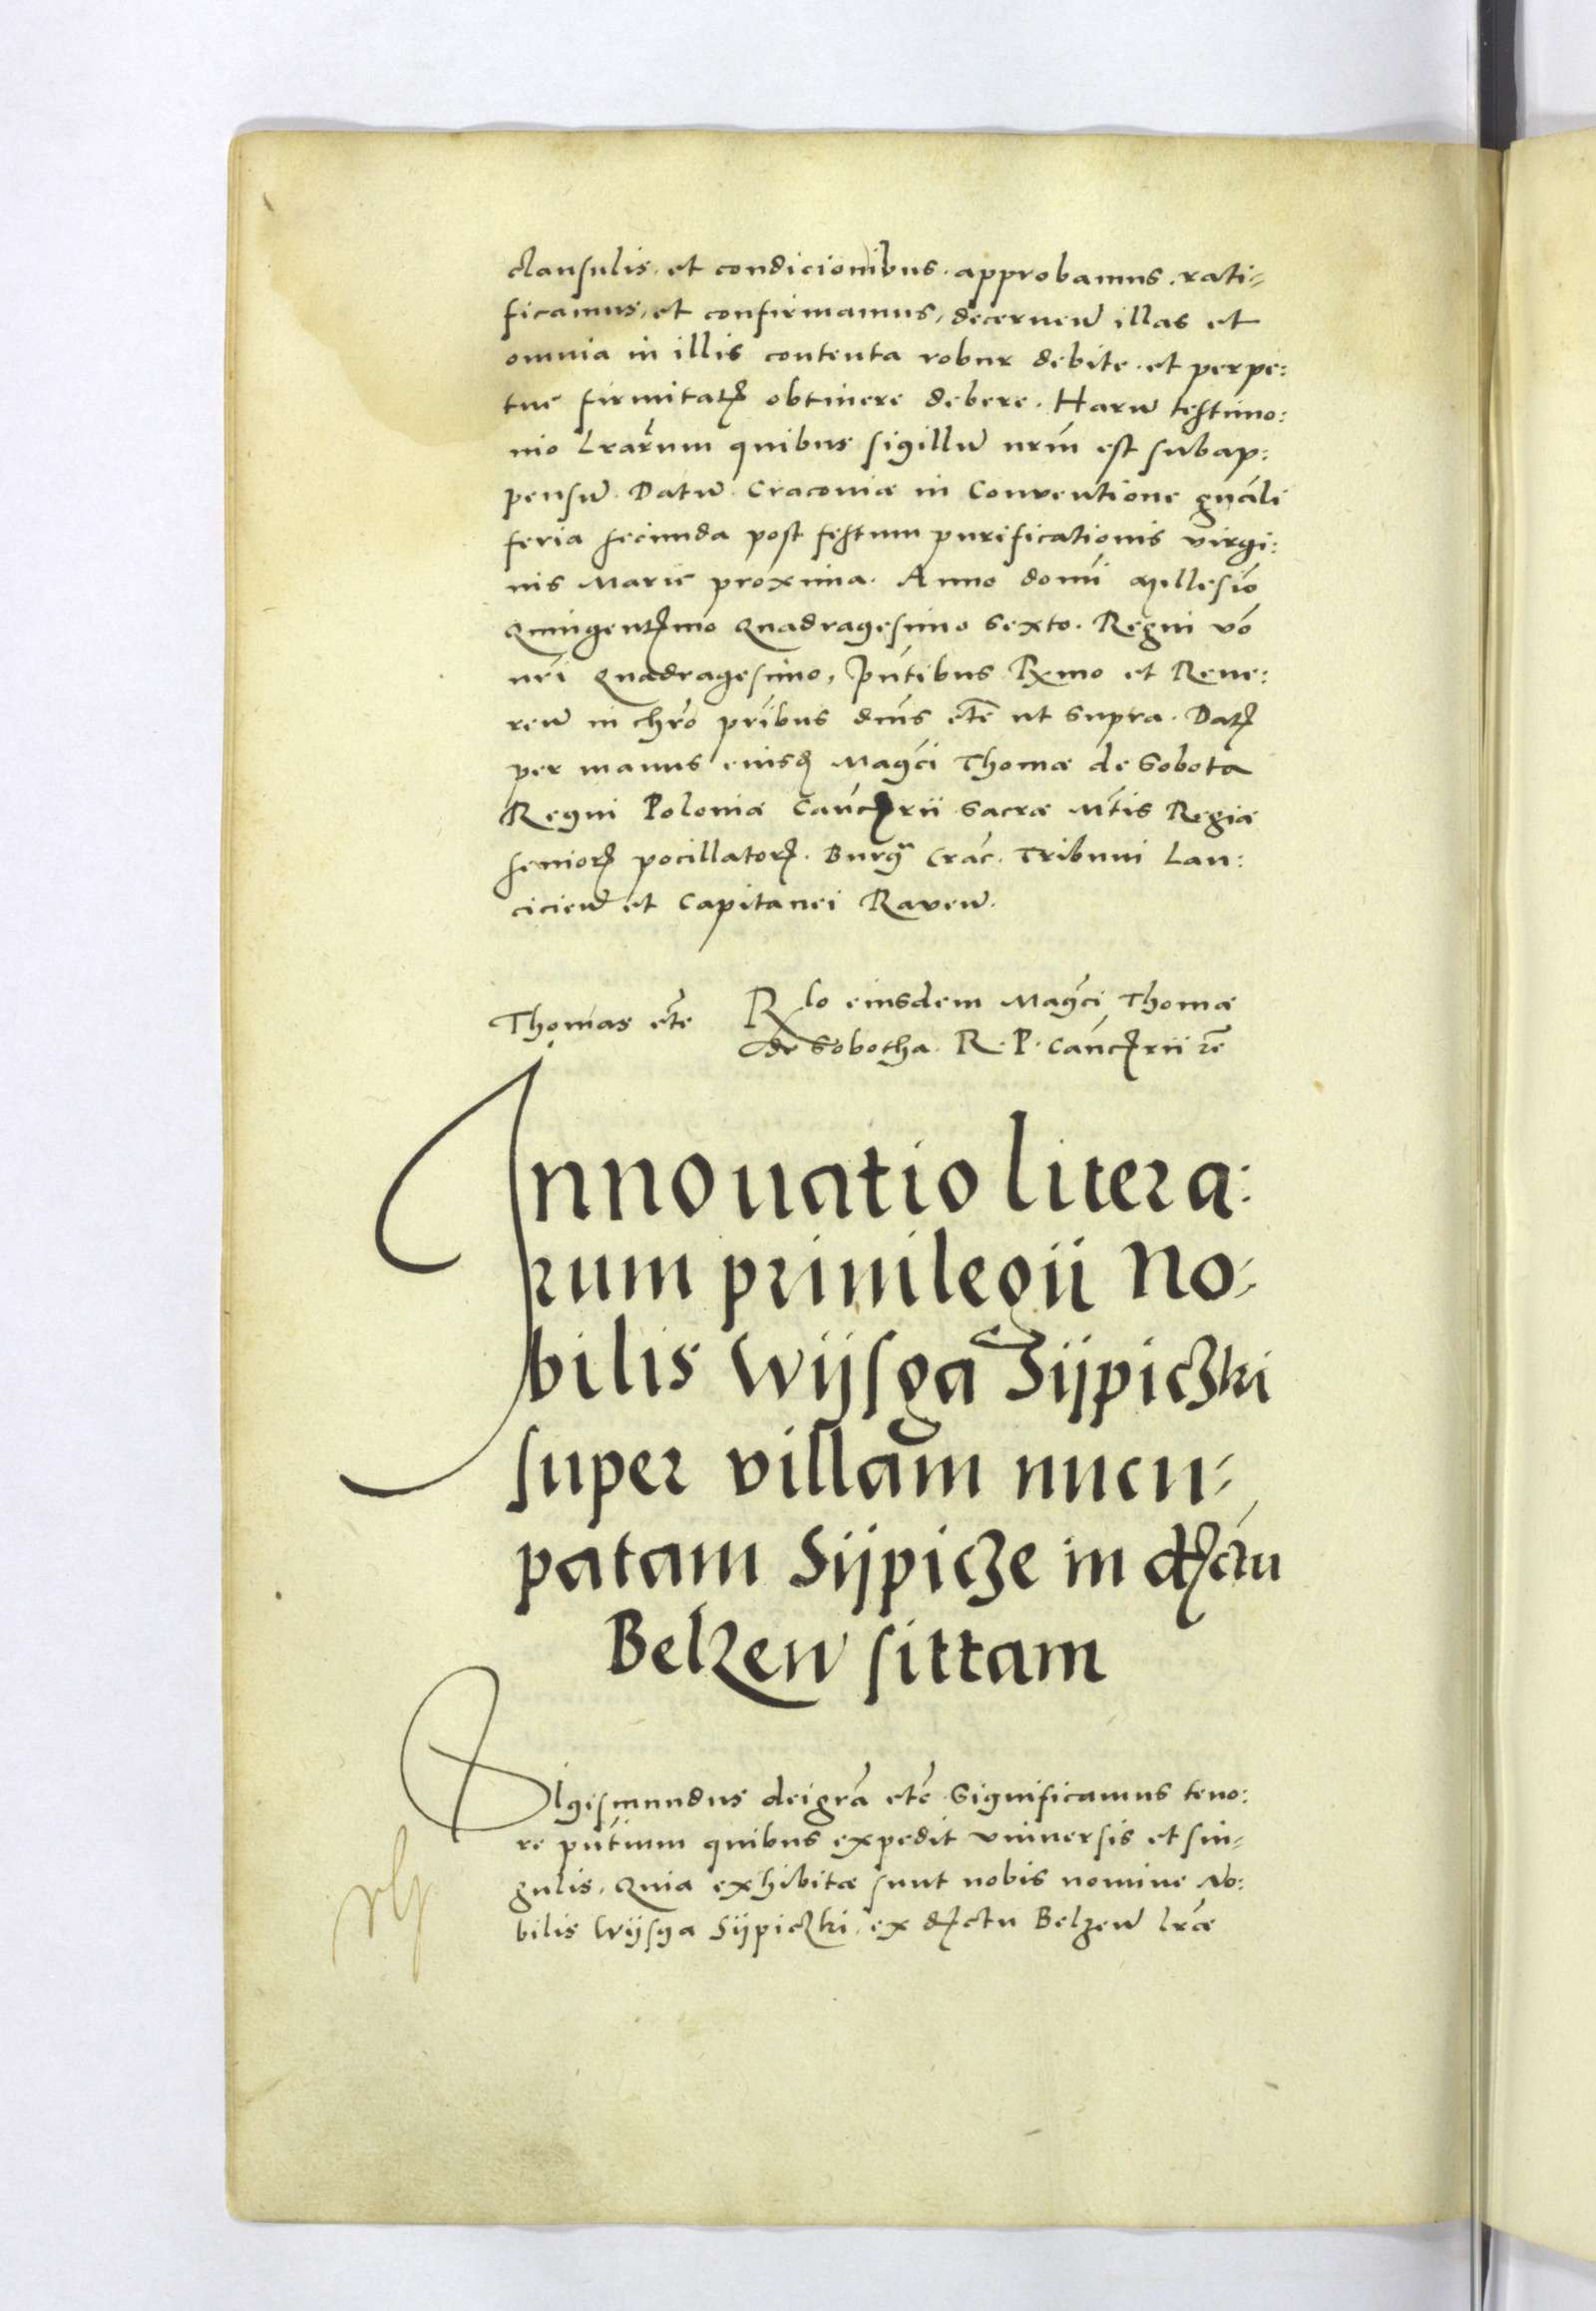 clausulis. et condicionibus. approbamus. rati=
ficamus, et confirmamus, decerneñ illas et
omnia in illis contenta robur debite. et perpe:
tue firmitatꝭ obtinere debere. Harũ testimo:
nio Lrãrum quibus sigillũ nrm̃ est subap:
pensũ. Datũ. Craconiæ in Conventione gnãli
feria secunda post festum purificationis virgi:
nis Marie proxima. Anno domĩ Millesiõ
Quingentꝭmo Quadragesimo Sexto. Regni võ
nrĩ Quadragesimo, Pñtibus Rx̃mo et Reve:
reñ in chrõ prĩbus dnĩs etc̃ ut supra. Datꝭ
per manus eiusꝭ Magc̃i Thomæ de Sobota
Regni Poloniæ Canc̃ꝭrii Sacræ Mt̃is Regiæ
seniorꝭ pocillatorꝭ. Burgr̃ Crac̃. Tribuni Lan:
cicieñ et Capitanei Raveñ.
Thomas etc̃
Rlo eiusdem Magc̃i Thomæ
de Sobotha. R. P. Canc̃ꝭrii ꝛc̃
Innouatio litera:
rum priuilegii No:
bilis Wijsga Sijpiczki
super villam nucu=
patam Sijpicze in dꝭctu
Belzeñ sittam
Sigismundus dei grã etc̃ Significamus teno:
re pñtium quibus expedit vniuersis et sin=
gulis, Quia exhibitæ sunt nobis nomine No:
bilis Wijsga Sijpiczki, ex dꝭctu Belzeñ lræ̃